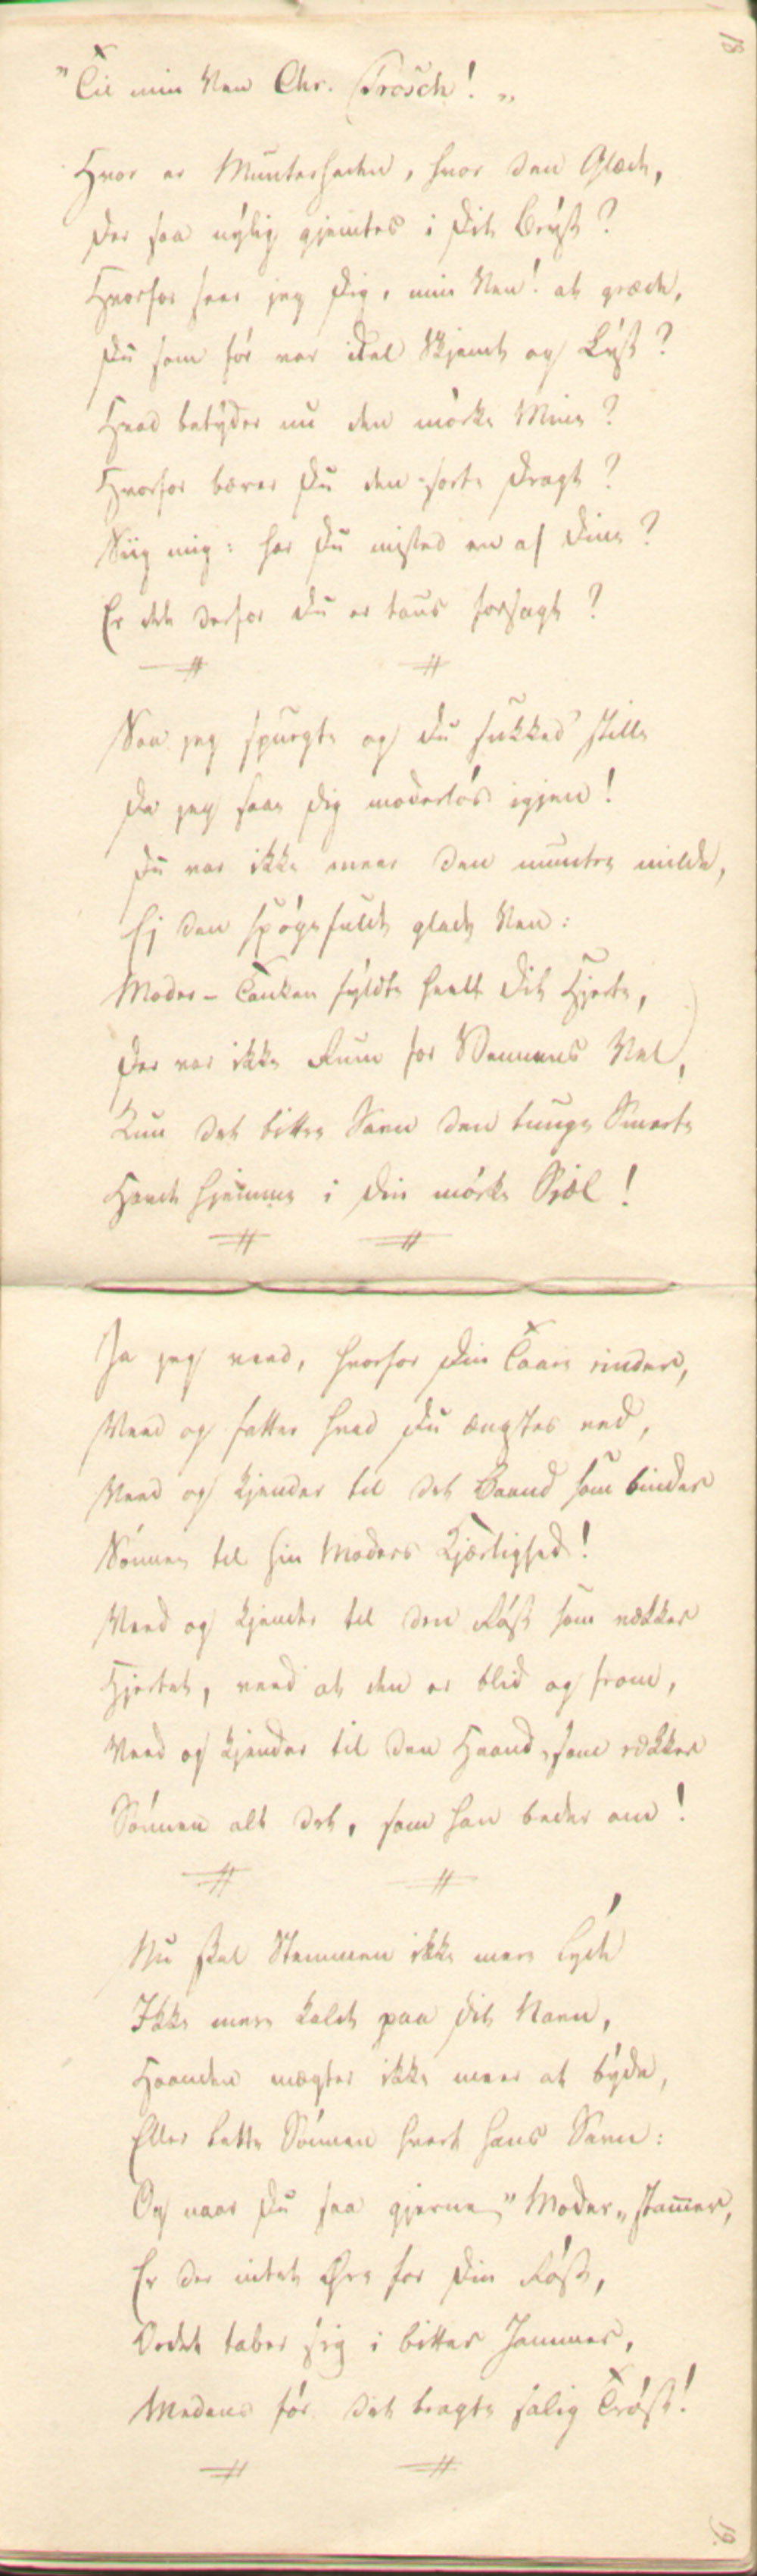 18
"Til min Ven Chr. Frosch! "
Hvor er Munterheden, hvor den Glæde,
Der saa nylig gjemtes i Dit Bryst?
Hvorfor seer jeg Dig, min Ven! at græde,
Du som før var idel Skjemt og Lyst?
Hvad betyder nu den mørke Mine?
Hvorfor bærer Du den sorte Dragt?
Siig mig: har Du mistet en af Dine?
Er det derfor Du er taus forsagt?
Saa jeg spurgte og Du sukked' stille
Da jeg saae Dig moderløs igjen!
Du var ikke meer den muntre milde,
Ej den spøgefulde glade Ven:
Moder-Tanken fyldte heelt Dit Hjerte,
Der var ikke Rum for Vennens Vel,
Kun det bittre Savn den tunge Smerte
Havde hjemme i Din mørke Sjæl!
Ja jeg veed, hvorfor Din Taare rinder,
Veed og fatter hvad Du ængstes ved,
Veed og kjender til det Baand som binder
Sønnen til sin Moders Kjærlighed!
Veed og kjender til den Røst som vækker
Hjertet, veed at den er blid og from,
Veed og kjender til den Haand, som rækker
Sønnen alt det, som han beder om!
Nu skal Stemmen ikke mere lyde
Ikke mere kalde paa Dit Navn,
Haanden mægter ikke meer at byde,
Eller lette Sønnen hvert hans Savn:
Og naar Du saa gjerne "Moder" stammer,
Er der intet Øre for Din Røst,
Ordet taber sig i bitter Jammer,
Medens før det bragte salig Trøst!
19.